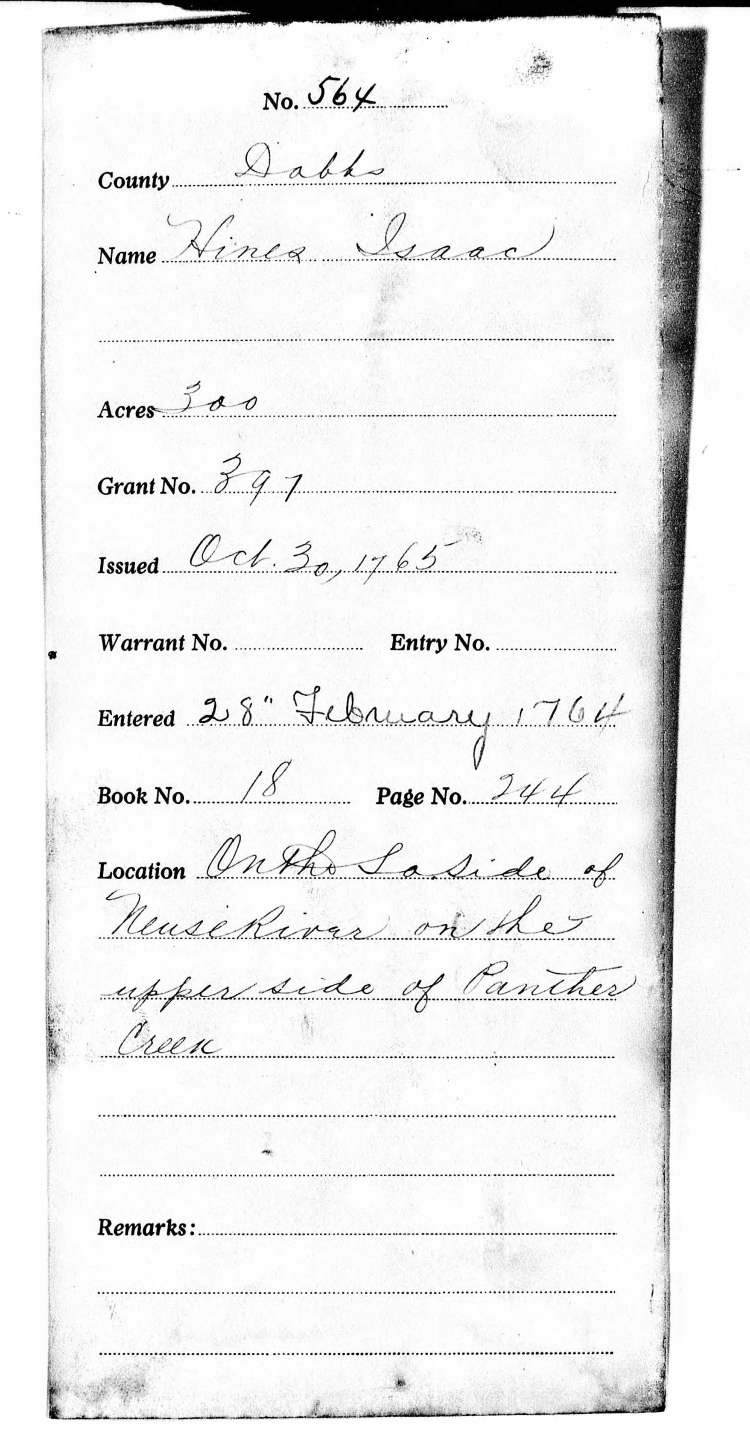 No. 564
County Dobbs
Name Hines Isaac
Acres 300
Grant No. 397
Issued Oct. 30, 1765
Warrant No. Entry No.
Entered 28" February 1764
Book No. 18 Page No. 244
Location On the So. Side of
Neuse River on the
upper side of Panther
Creek
Remarks: